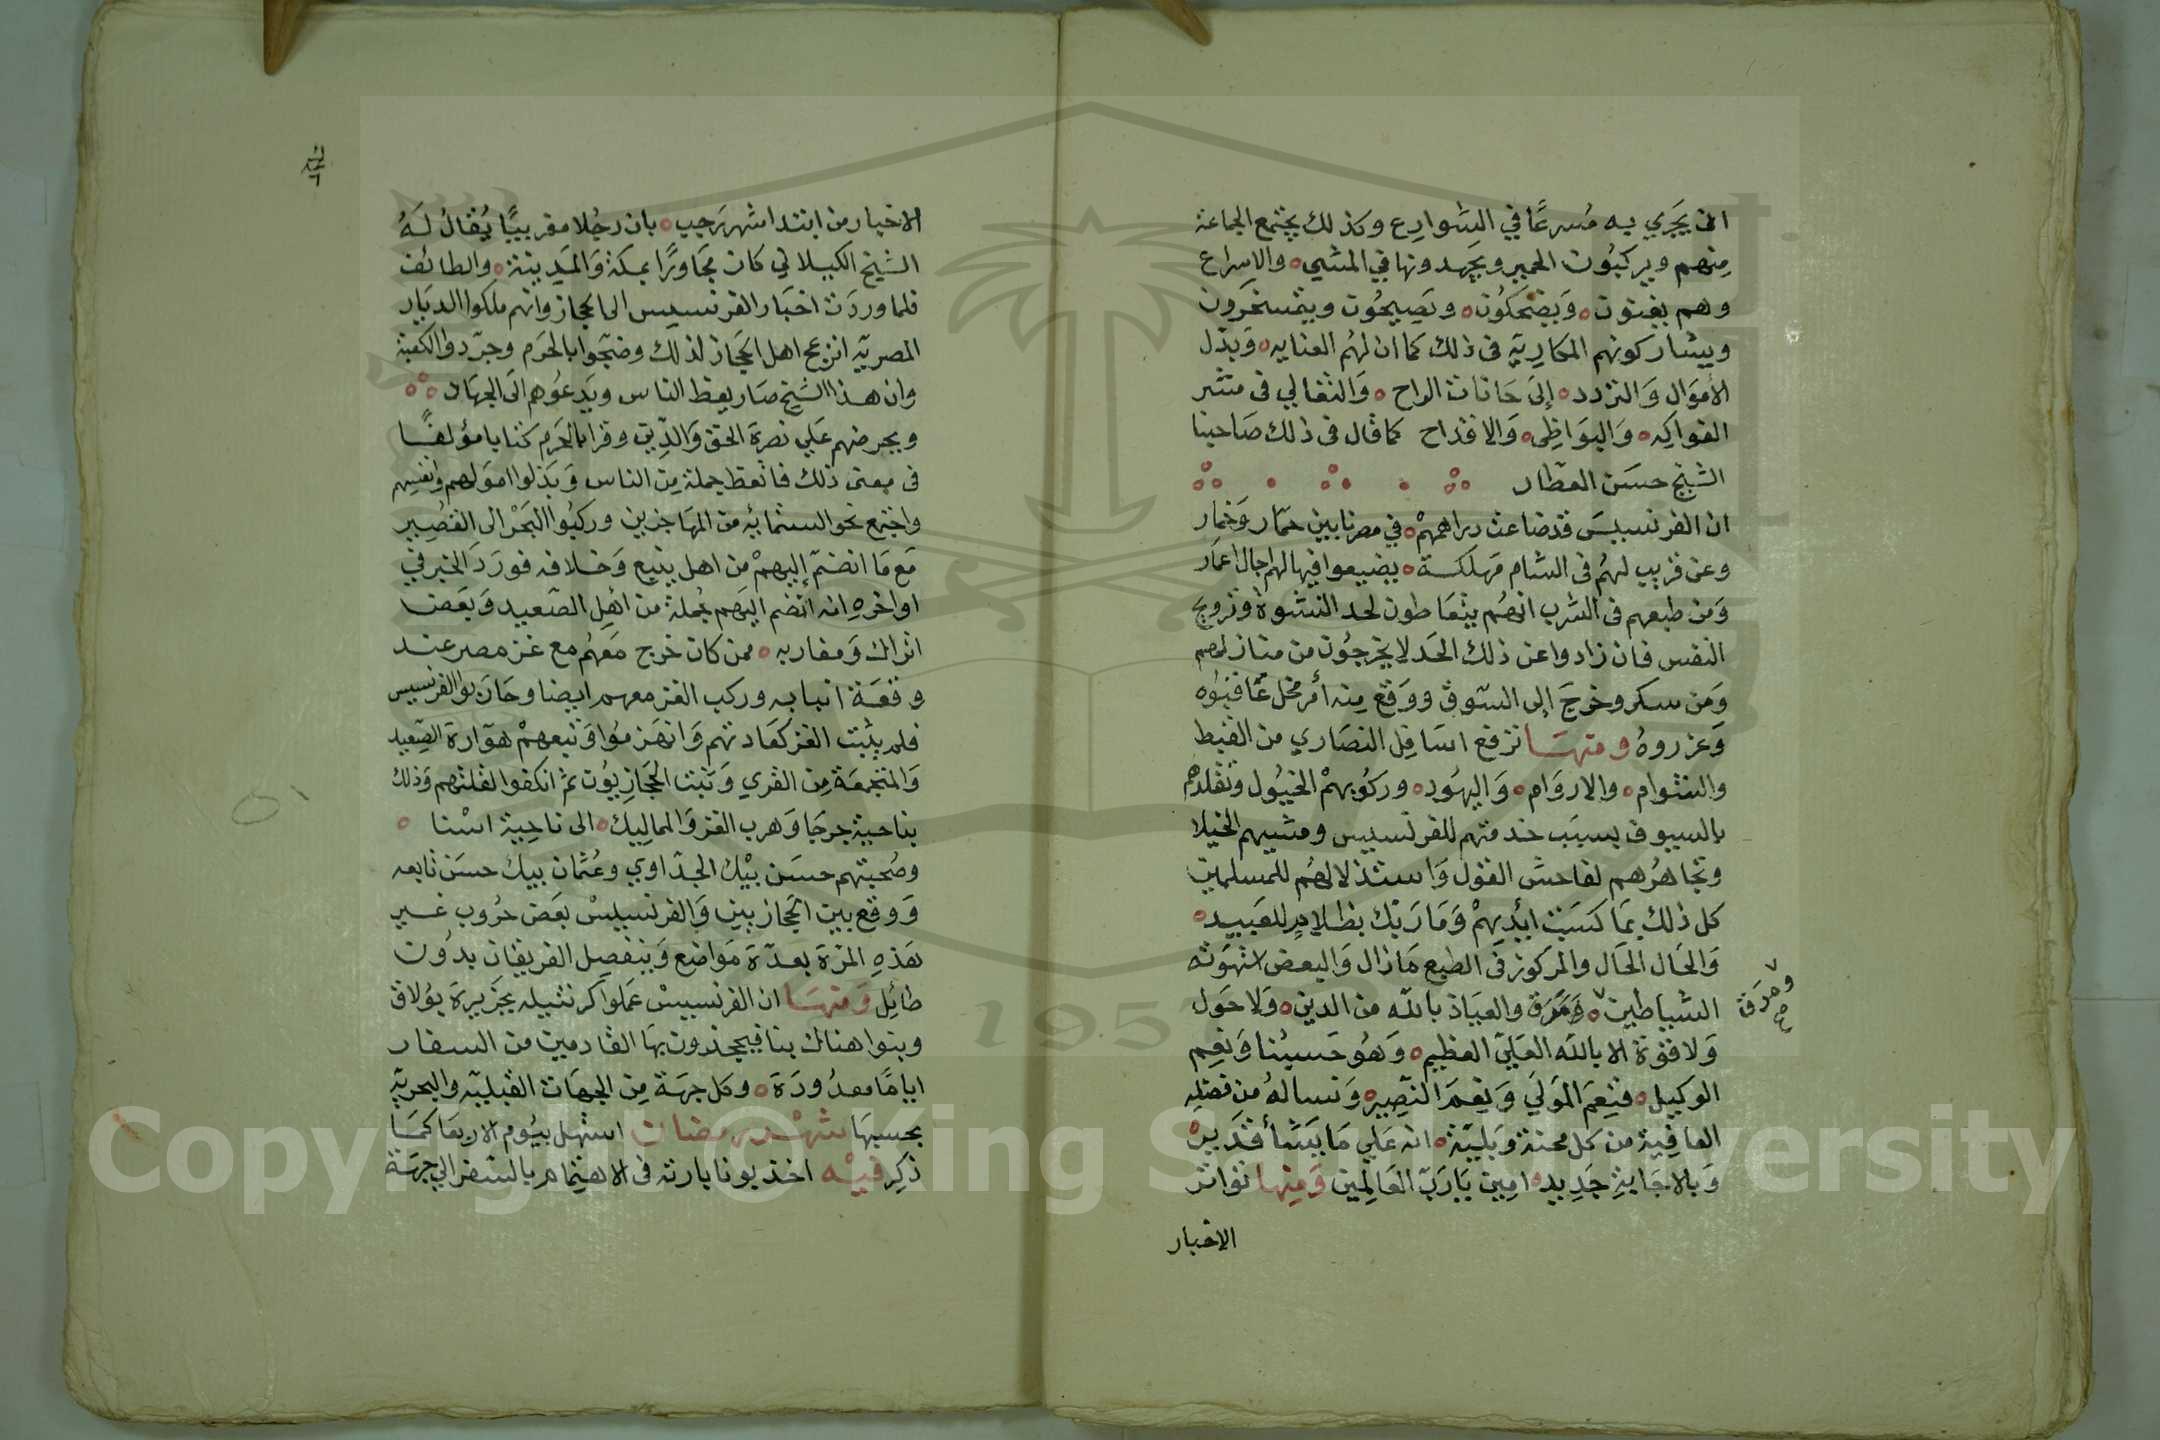 ان يجري به مُسرعًا في الشوارع وكذلك يجتمع الجماعة
منهم ويركبُون الحمير ويجهدونها في المشي والاسراع
وهم يغنون ويضحكُون ويصيحُون ويتمسخرون
ويشاركونهم المكاريّه في ذلك كما ان لهُم العنايه وَبذل
الأموال وَالتردد إلى حانات الراح وَالتغالي في مشتر
الفواكه وَالبواظِي وَالاقداح كما قال في ذلك صَاحبنا
الشيخ حسَن العطار
ان الفرنسيسَ قد ضاعت دراهمهمْ في مصرنا بين حمّار وَخمار
وعن قريب لهُم في الشام مَهلكة يضيعوا فيها لهم اجال اعمار
وَمن طبعهم في الشرب انهُم يتعَاطون لحد النشوة وترويح
النفس فان زادوا عن ذلك الحَد لا يخرجُون من منازلهم
وَمَن سكر وخرجَ إلى السّوق ووَقع منه أمر مخل عَاقبوُه
وَعزروهُ ومنهَا ترفع اسَافِل النصَاري من القبط
والشوام والاروَام وَاليهُود وركُوبهمْ الخيُول وتقلدهم
بالسيوف بسبَب خدمتهم للفرنسيس ومشيهم الخيلا
وتجاهرُهم لفاحش القول وَاستذلالهُم للمسلمين
كل ذلك بمَا كسَبَت ايْديهمْ وَمَا رَبّك بظلامٍ للعَبيد
وَالحَال الحَال والمركوز في الطبع مَا زال وَالبعض استهوَته
الشياطين ومرق والعيَاذ بالله من الدين وَلا حَول
ومرق
صح
وَلا قوّة الا بالله العَليّ العظيم وَهوُ حَسبُنا وَنِعم
الوكيل فنِعمَ المَولَي وَنِعمَ النّصِير وَنسالهُ من فضله
العافية من كل محنة وَبليّة انه عَلي مَا يَشأ قدَير
وَبالاجَابةِ جَدِيد امين يَارَبّ العَالمِين وَمِنها تواتر
الاخبار
الاخبار من ابتدا شهر رَجب بان رجُلا مغربيًا يُقالُ لَهُ
الشيخ الكيلاني كان مجَاورًا بمكة وَالمَدينة والطائف
فلما وردَت اخبَار الفرنسيس الى الحجاز وانهم ملكوا الديَار
المصريّه انزعج اهل الحجَاز لذلك وضجّوا بالحَرَم وجرّدوا الكعبة
وان هذا الشيخ صَار يعظ الناس ويَدعُوهم الى الجهَاد
ويحرضهم عَلي نصرة الحق وَالدّين وقرا بالحَرم كتابا مؤلفًا
في معني ذلك فاتعظ جملة مِن الناس وَبَذلوا اموَالهم وانفسهم
واجتمع نحو الستمائه من المهَاجرين وركبُوا البَحْر الى القصُير
مَع مَا انضمّ إليهمْ من اهل ينبع وَخلافه فورَدَ الخبر في
اواخرهِ انه انضم اليَهم جُملة من اهْل الصّعيد وَبَعَض
اتراك وَمغاربه ممن كان خرج مَعهُم مع غز مصر عند
وقعَة انبابه وركب الغز معهم ايضا وحَارَبوا الفرنسيس
فلم يثبت الغز كعَادتهم وَانهَزمُوا وَتبعهمْ هوّارة الصّعيد
وَالمتجمعَة مِن القري وَثبت الحجَازيُون ثم انكفوا لقلتهم وَذلك
بناحية جرجَا وَهرب الغز وَالممالِيك الى ناحِية اسْنا
وصُحبتهم حسَن بيْك الجدّاوي وعُثمان بيك حسَن تابعه
وَوقع بين الحجازيين وَالفرنسيسْ بَعَض حرُوب غير
هَذهِ المَرّة بعدّة مَواضع وَينفصِل الفريقان بدوُن
طائِل وَمنهَا ان الفرنسيسْ عَملوا كرنتيله بجَزيرة بوُلاق
وبنوا هناك بنا فيحجزون بهَا القادمين من السفار
ايامًا معدُودَة وكل جهَة مِن الجهَات القبليّه والبحريّه
بحسبهَا شهْر رمضان استهل بيَوم الاربعَا كمَا
ذكِر فيْه اخذ بونابارته في الاهتمام بالسّفر الي جهَة